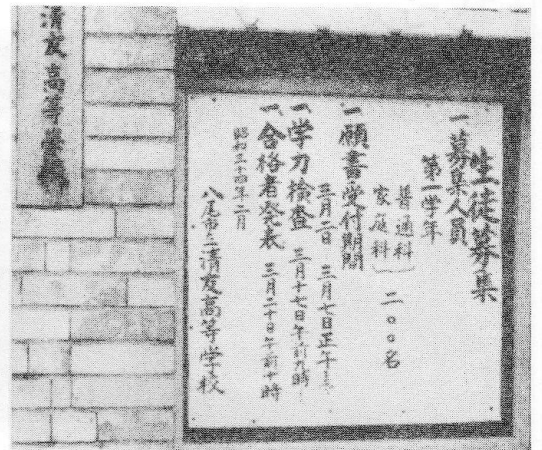 生徒募集
一、募集人員
第一学年
普通科
家庭科
二〇〇名
一、願書受付期間
三月二日 三月七日正午
一、学力検査 三月十七日午前九時
一、合格者発表 三月二十日午前十時
昭和三十四年二月
八尾市立清友高等学校
清友高等学校